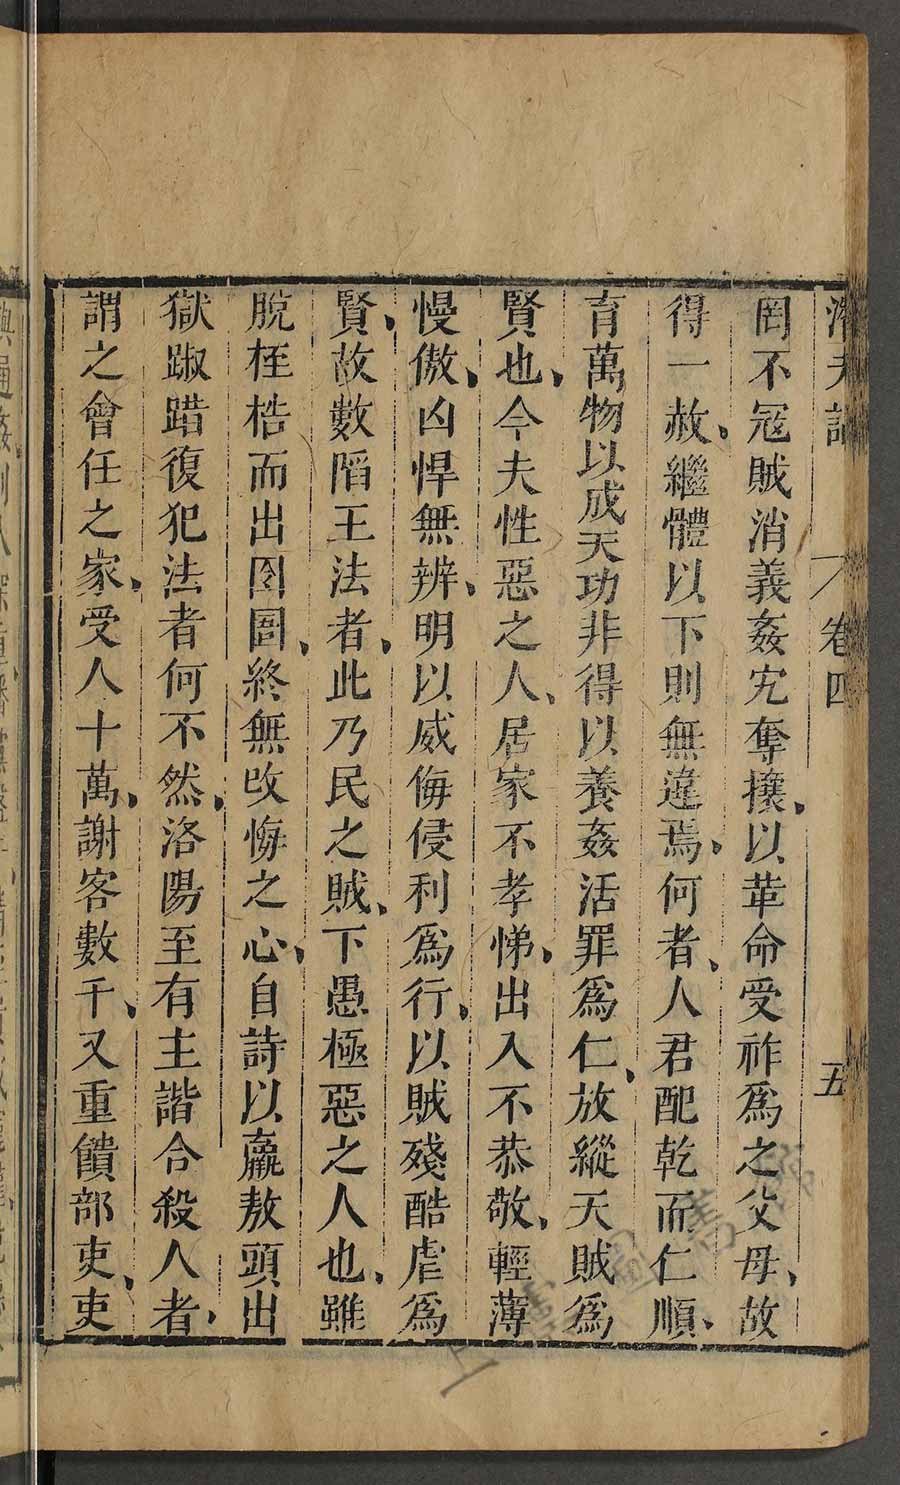 潛夫論 卷四 五
罔不冦賊消義姦宄奪攘、以革命受祚爲之父母、故
得一赦、繼體以下則無違焉、何者、人君配乾而仁順、
育萬物以成天功非得以養姦活罪爲仁、放縱天賊爲
賢也、今夫性惡之人、居家不孝悌、出入不恭敬、輕薄
慢傲、凶悍無辨、明以威侮侵利爲行、以賊殘酷虐爲
賢、故數陷王法者、此乃民之賊、下愚極惡之人也、雖
脫桎梏而出囹圄、終無改悔之心、自詩以羸敖頭出
獄踧踖復犯法者何不然、洛陽至有主諧合殺人者、
謂之會任之家、受人十萬、謝客數千、又重饋部吏、吏